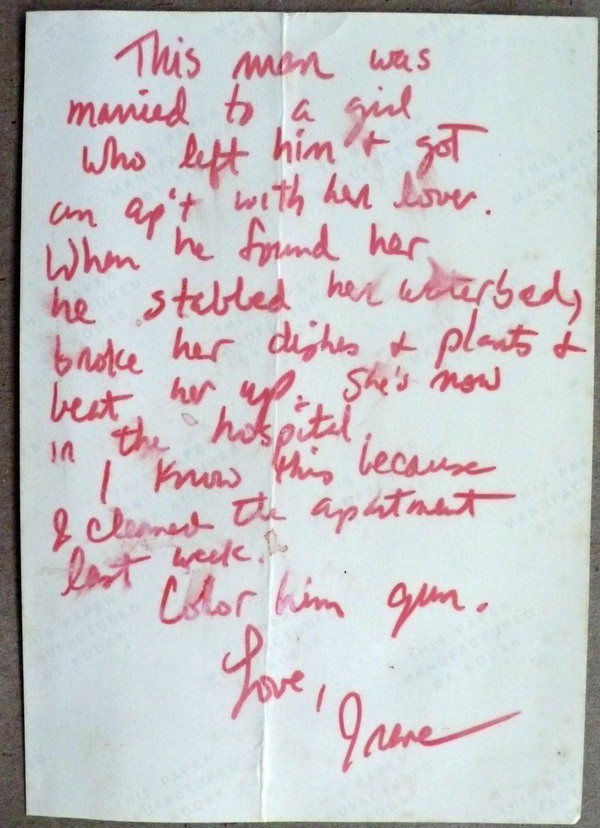 This man was
married to a girl
who left him + got
an ap't with her lover.
When he found her
he stabbed her waterbed,
broke her dishes + plants +
beat her up. She's now
in the hospital
I know this because
I cleaned the apartment
last week.
Color him gun.
Love,
Irene
THIS PAPER
MANUFACTURED
BY KODAK